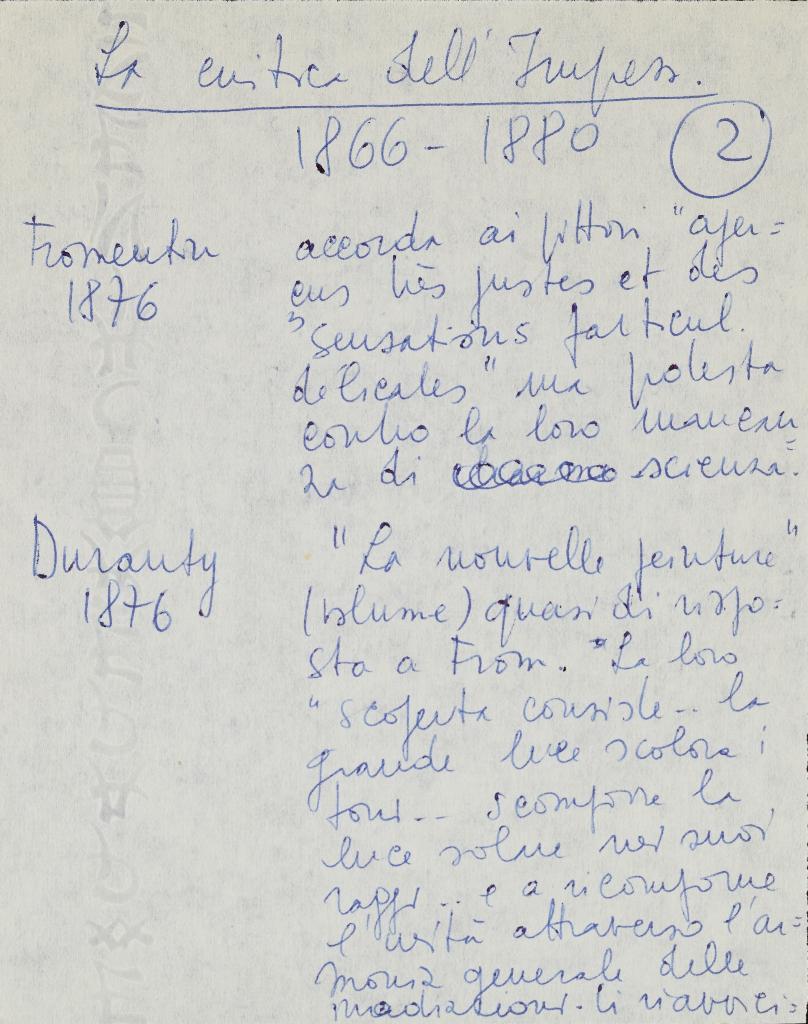 La critica dell'Impess.
1866 - 1880 2
Fromentin accorda ai pittori "aper=
1876 cus très justes et des
"sensations particul.
délicates" ma protesta
contro la loro mancan
za di scienza.
Duranty "La nouvelle peinture"
1876 (volume) quasi di rispo=
sta a From. "La loro
"scoperta consiste.. la
grande luce scolora i
toni... scomporre la
luce solare nei suoi
raggi... e a ricomporne
l'unità attraverso l'ar=
monia generale delle
irradiazioni. li riavvici=